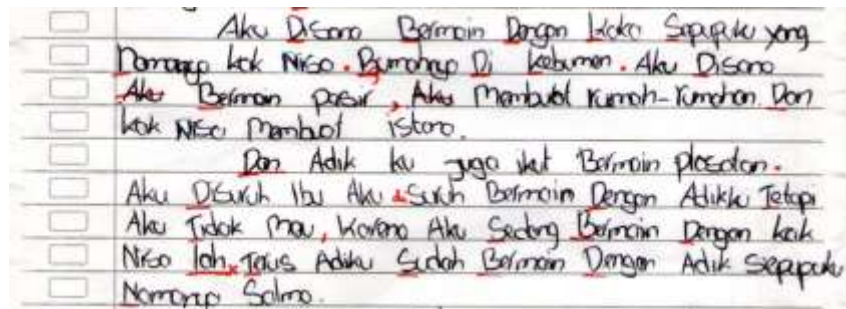 Aku Disana Bermain Dengan kaka Sepupuku yang
Namanya kak Nisa. Rumahnya Di kebumen. Aku Disana
Aku Bermain pasir, Aku Membuat rumah-rumahan Dan
kak Nisa Membuat istana.
Dan Adik ku juga ikut Bermain plosotan.
Aku Disuruh Ibu Aku Suruh Bermain Dengan Adikku Tetapi
Aku Tidak Mau, Karena Aku Sedang Bermain Dengan kak
Nisa lah, Terus Adiku Sudah Bermain Dengan Adik Sepupuku
Namanya Salma.